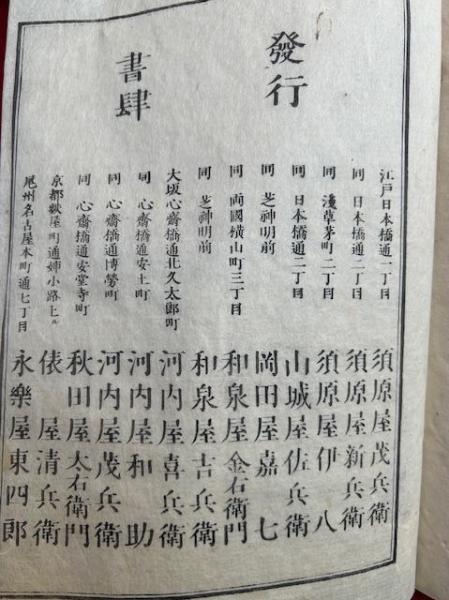 發行
書肆
江戸日本橋通一丁目 須原屋茂兵衛
同 日本橋通二丁目 須原屋新兵衛
同 淺草茅町二丁目 須原屋伊八
同 日本橋通二丁目 山城屋佐兵衛
同 芝神明前 岡田屋嘉七
同 両國横山町三丁目 和泉屋金右衛門
同 芝神明前 和泉屋吉兵衛
大坂心齋橋通北久太郎町 河内屋喜兵衛
同 心齋橋通安土町 河内屋和助
同 心齋橋通博勞町 河内屋茂兵衛
同 心齋橋通安堂寺町 秋田屋太右衛門
京都 通姉小路上ル 俵屋清兵衛
尾州名古屋本町通七丁目 永樂屋東四郎